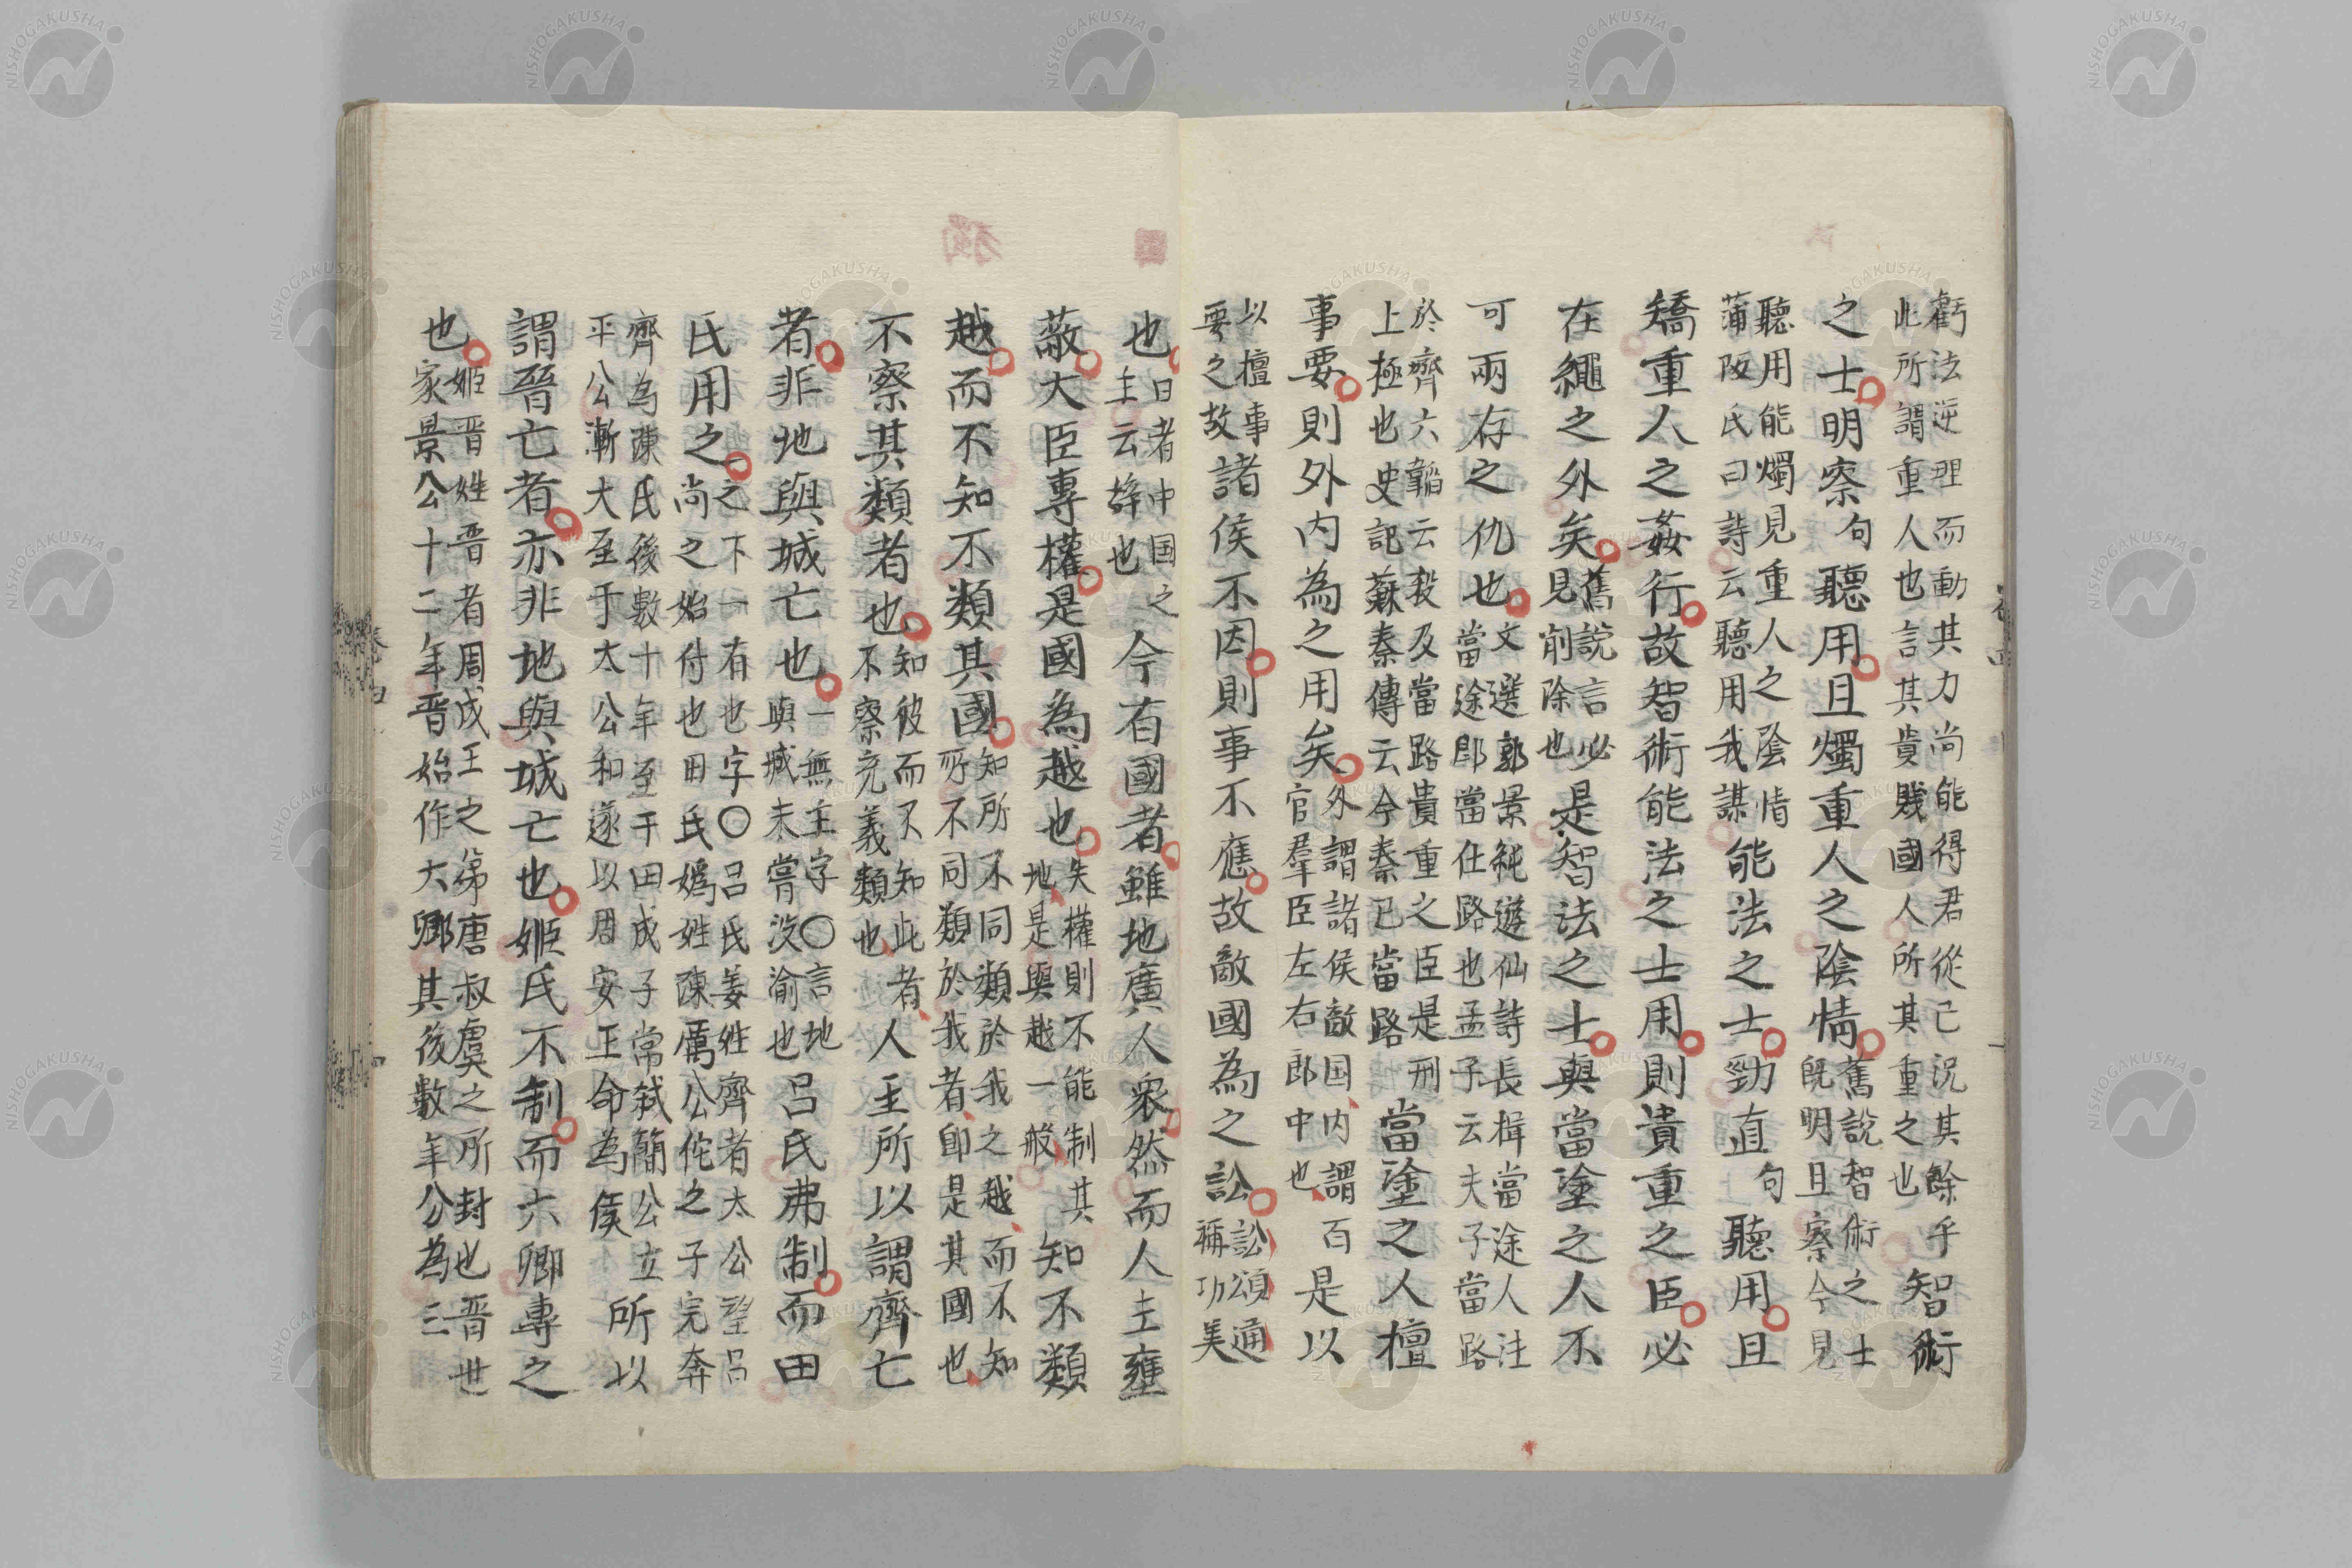 虧法逆理而動其力尚能得君從己況其餘乎智術
此所謂重人也言其貴賤國人所其重之也
之士明察句聽用且燭重人之陰情舊說智術之士
既明且察今見
聽用能燭見重人之陰情能法之士勁直句聽用且
蒲阪氏曰詩云聽用我謀
矯重人之姦行故智術能法之士用則貴重之臣必
在繩之外矣舊說言必是智法之士與當塗之人不
見削除也
可兩存之仇也文選郭景純遊仙詩長揖當途人注
當途即當仕路也孟子云夫子當路
於齊六韜云殺及當路貴重之臣是刑當塗之人擅
上極也史記蘇秦傳云今秦已當路
事要則外内為之用矣外謂諸侯敵国内謂百是以
官羣臣左右郎中也
以擅事諸侯不因則事不應故敵國為之訟訟頌通
要之故稱功美
也曰者中国之今有國者雖地廣人衆然而人主壅
主云辞也
蔽大臣專權是國為越也失權則不能制其知不類
地是與越一般
越而不知不類其國知所不同類於我之越而不知
所不同類於我者即是其國也
不察其類者也知彼而不知此者人主所以謂齊亡
不察充義類也
者非地與城亡也一無主字〇言地呂氏弗制而田
與城未嘗没渝也
氏用之之下一有也字〇呂氏姜姓齊者太公望呂
尚之始付也田氏嬀姓陳厲公佗之子完奔
齊為陳氏後數十年至于田成子常弑簡公立所以
平公漸大至于太公和遂以周安王命為侯
謂晉亡者亦非地與城亡也姬氏不制而六卿專之
也姬晋姓晋者周成王之弟唐叔虞之所封也晋世
家景公十二年晋始作大卿其後數年公為三
卷四